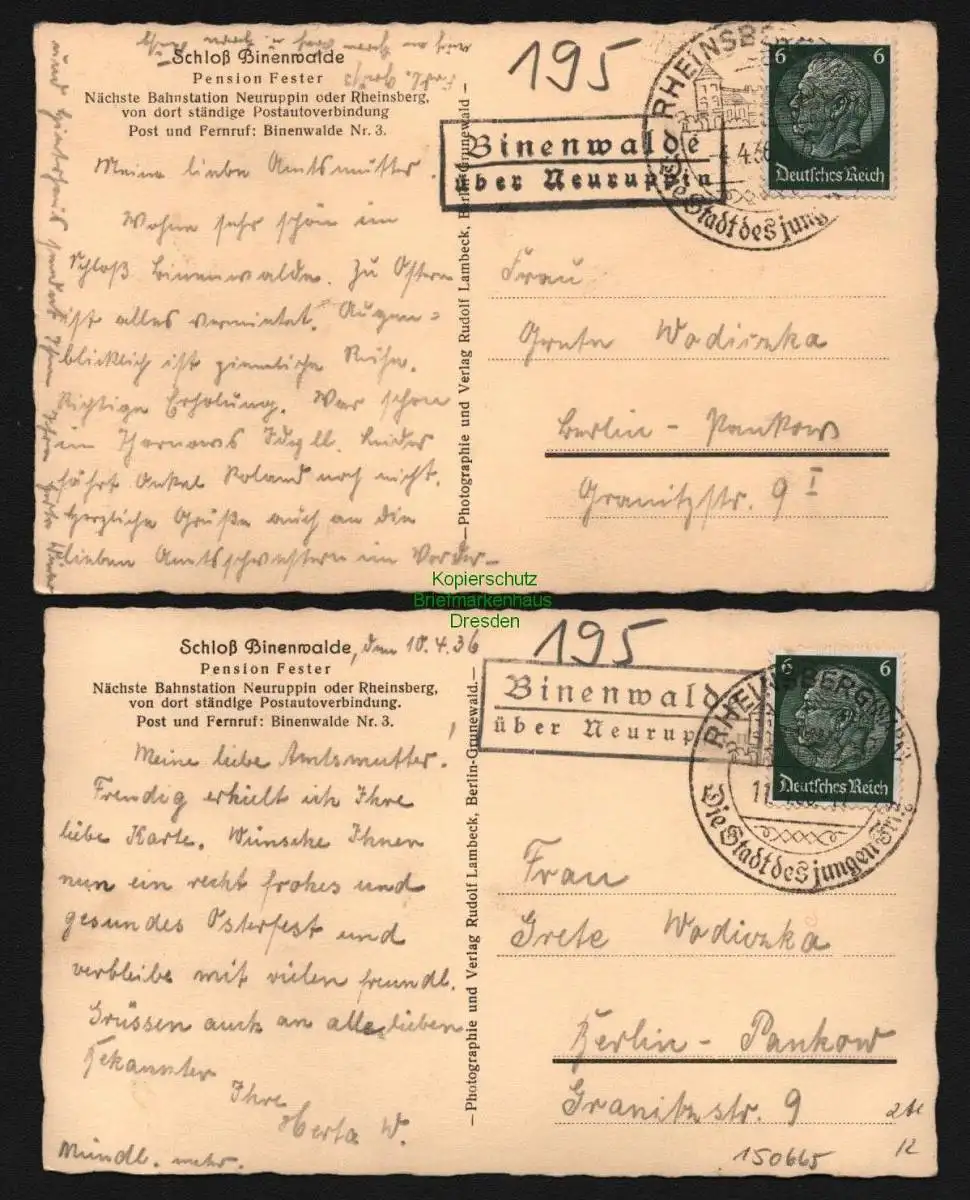 Schloß Binenwalde
Pension Fester
Nächste Bahnstation Neuruppin oder Rheinsberg,
von dort ständige Postautoverbindung
Post und Fernruf: Binenwalde Nr. 3.
195
Binenwalde
über Neuruppin
RHEINSBE
4.4.36
Die Stadt des jung
6 6
Deutsches Reich
Meine liebe Amtsmutter.
Wohne sehr schön im
Schloß Binenwalde. Zu Ostern
ist alles vermietet. Augen=
blicklich ist ziemliche Ruhe.
Richtige Erholung. War schon
in Tharnows Idyll. Leider
fährt Onkel Roland noch nicht.
Herzliche Grüße auch an die
lieben Amtsschwestern im Vorder-
und Hinterhaus sendet Ihnen Ihre Herta
—Photographie und Verlag Rudolf Lambeck, Berlin-Grunewald—
Frau
Grete Wodiczka
Berlin - Pankow
Granitzstr. 9 I
Kopierschutz
Briefmarkenhaus
Dresden
Schloß Binenwalde, den 10.4.36
Pension Fester
Nächste Bahnstation Neuruppin oder Rheinsberg,
von dort ständige Postautoverbindung.
Post und Fernruf: Binenwalde Nr. 3.
195
Binenwald
über Neurupp
RHEINSBERG (MARK)
11
Die Stadt des jungen Fritz
6 6
Deutsches Reich
Meine liebe Amtsmutter!
Freudig erhielt ich Ihre
liebe Karte. Wünsche Ihnen
nun ein recht frohes und
gesundes Osterfest und
verbleibe mit vielen freundl.
Grüssen auch an alle lieben
Bekannten
Ihre
Herta W.
Mündl. mehr.
—Photographie und Verlag Rudolf Lambeck, Berlin-Grunewald.—
Frau
Grete Wodiczka
Berlin - Pankow
Granitzstr. 9
150665
12